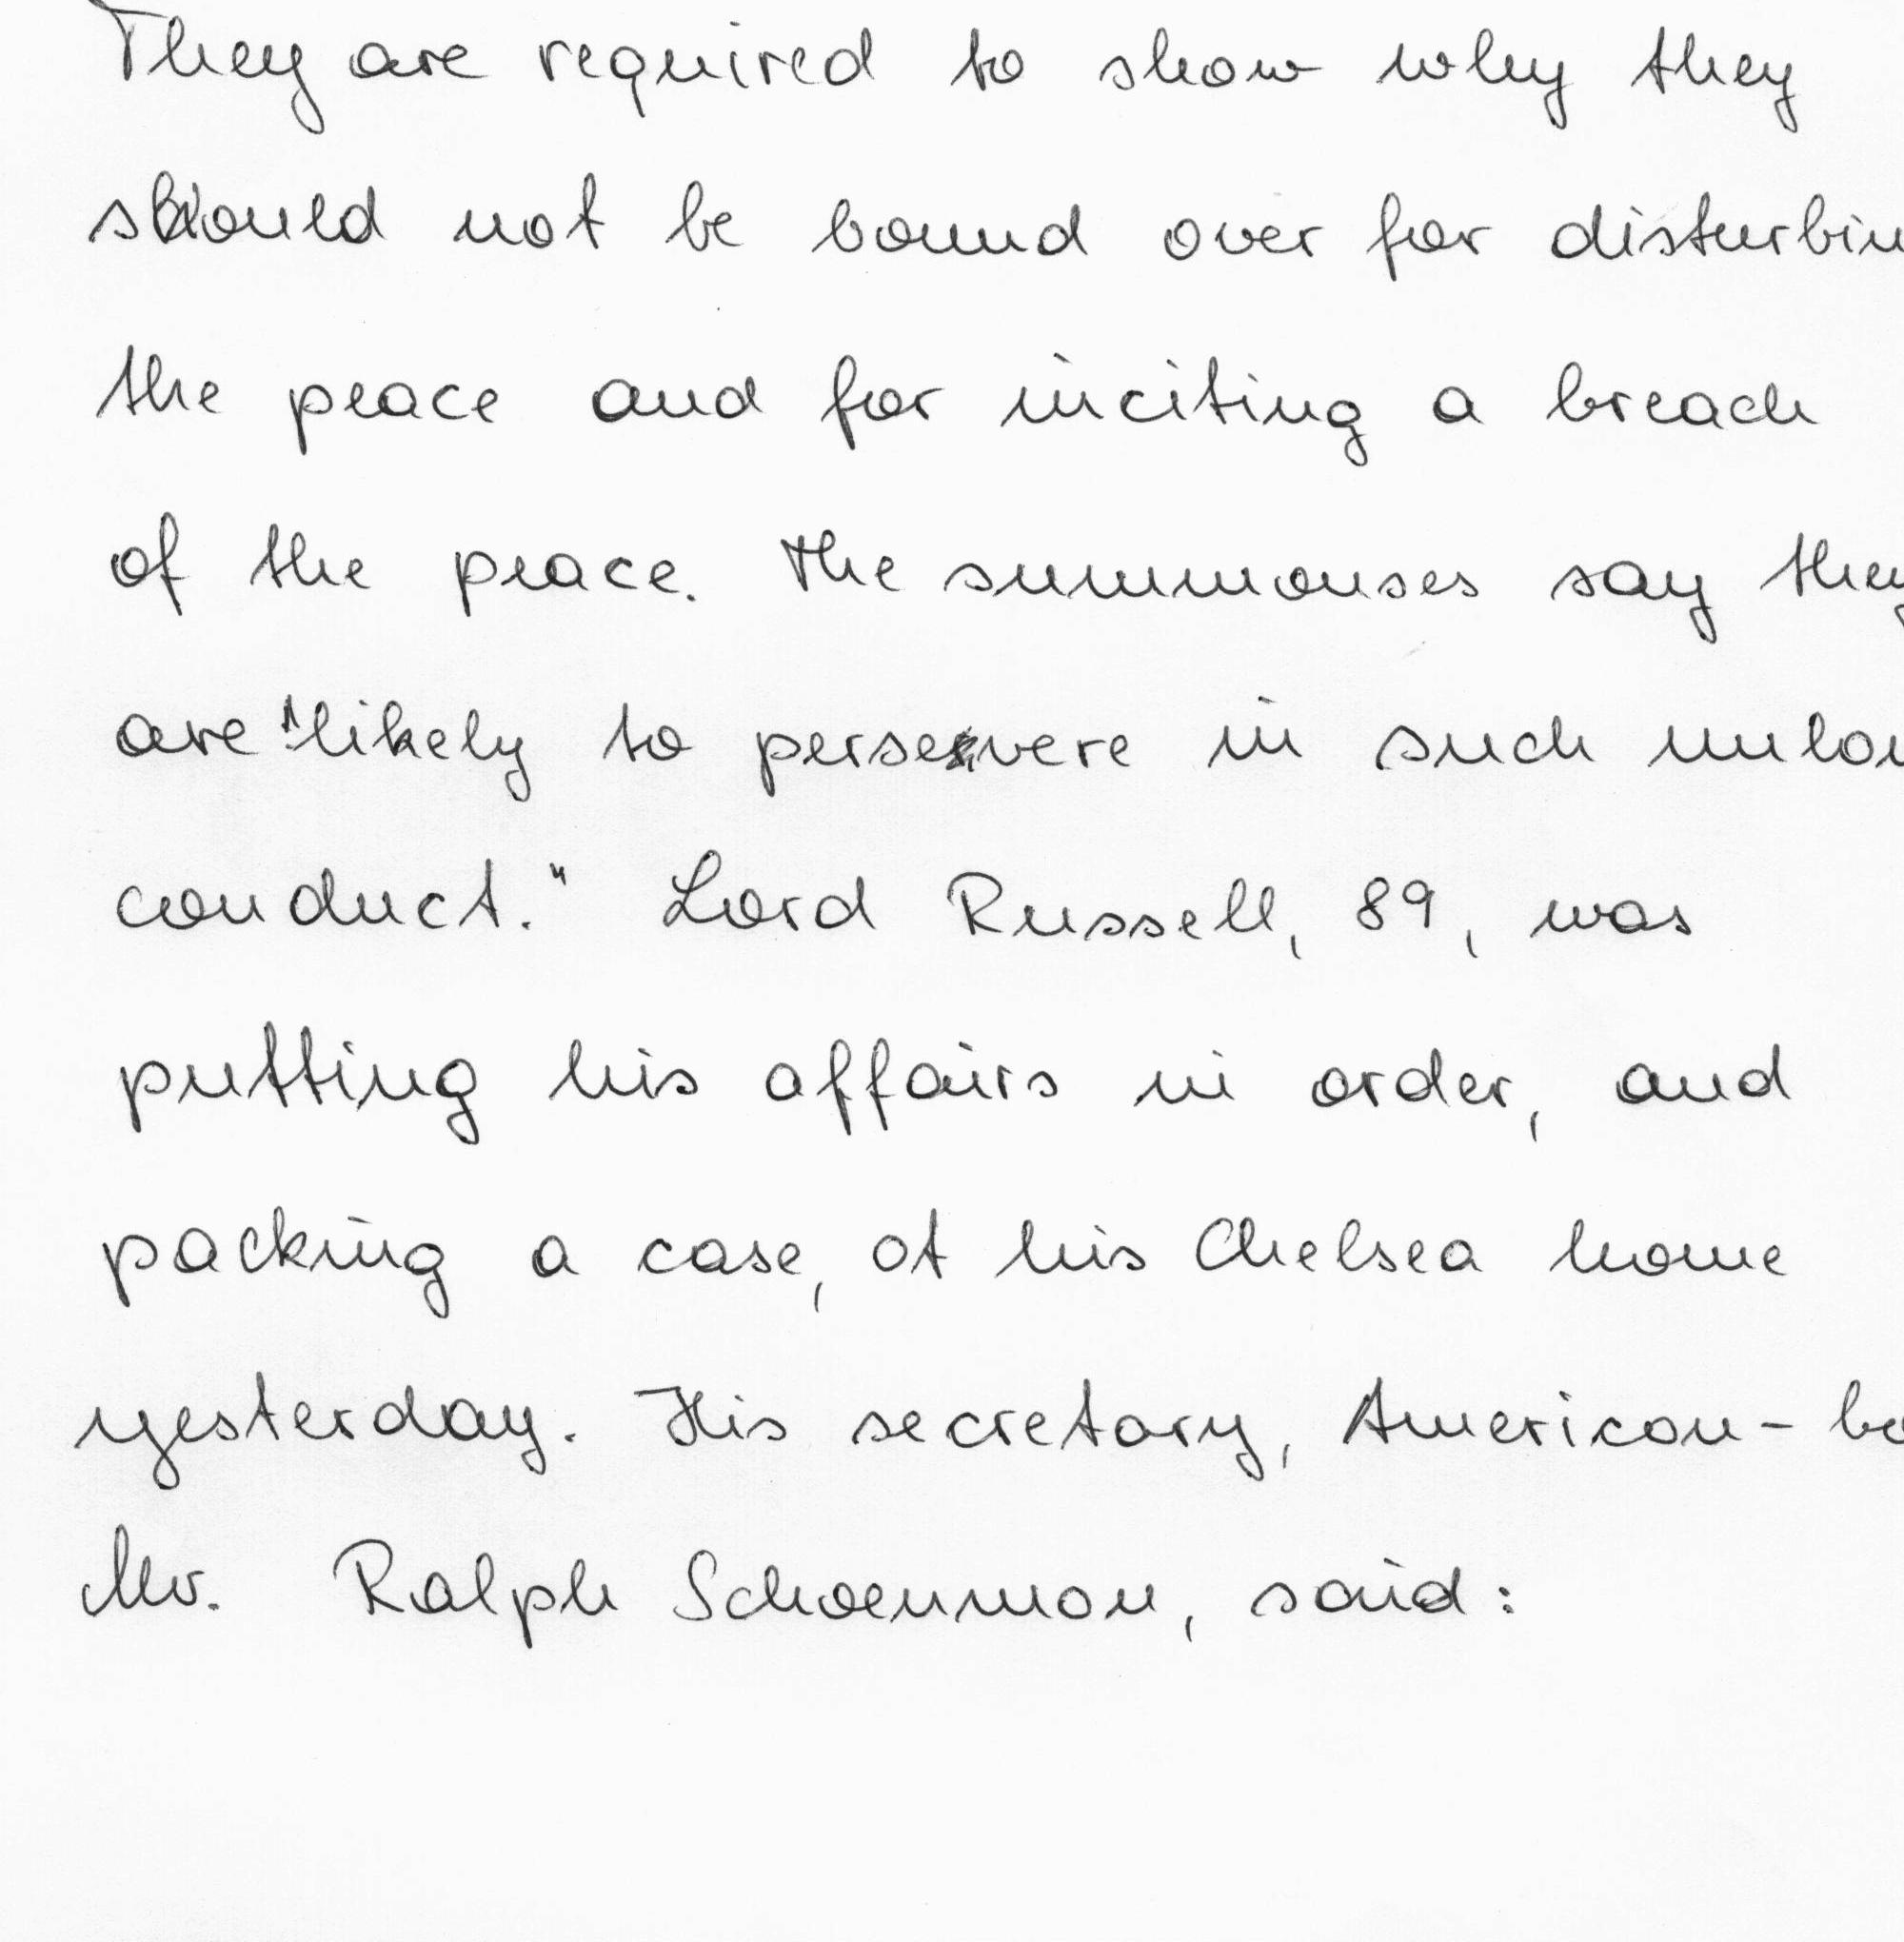 They are required to show why they
should not be bound over for disturbin
the peace and for inciting a breach
of the peace. The summonses say they
are "likely to persevere in such
conduct." Lord Russell, 89, was
putting his affairs in order, and
packing a case, at his Chelsea home
yesterday. His secretary, American-
Mr. Ralph Schoenman, said: